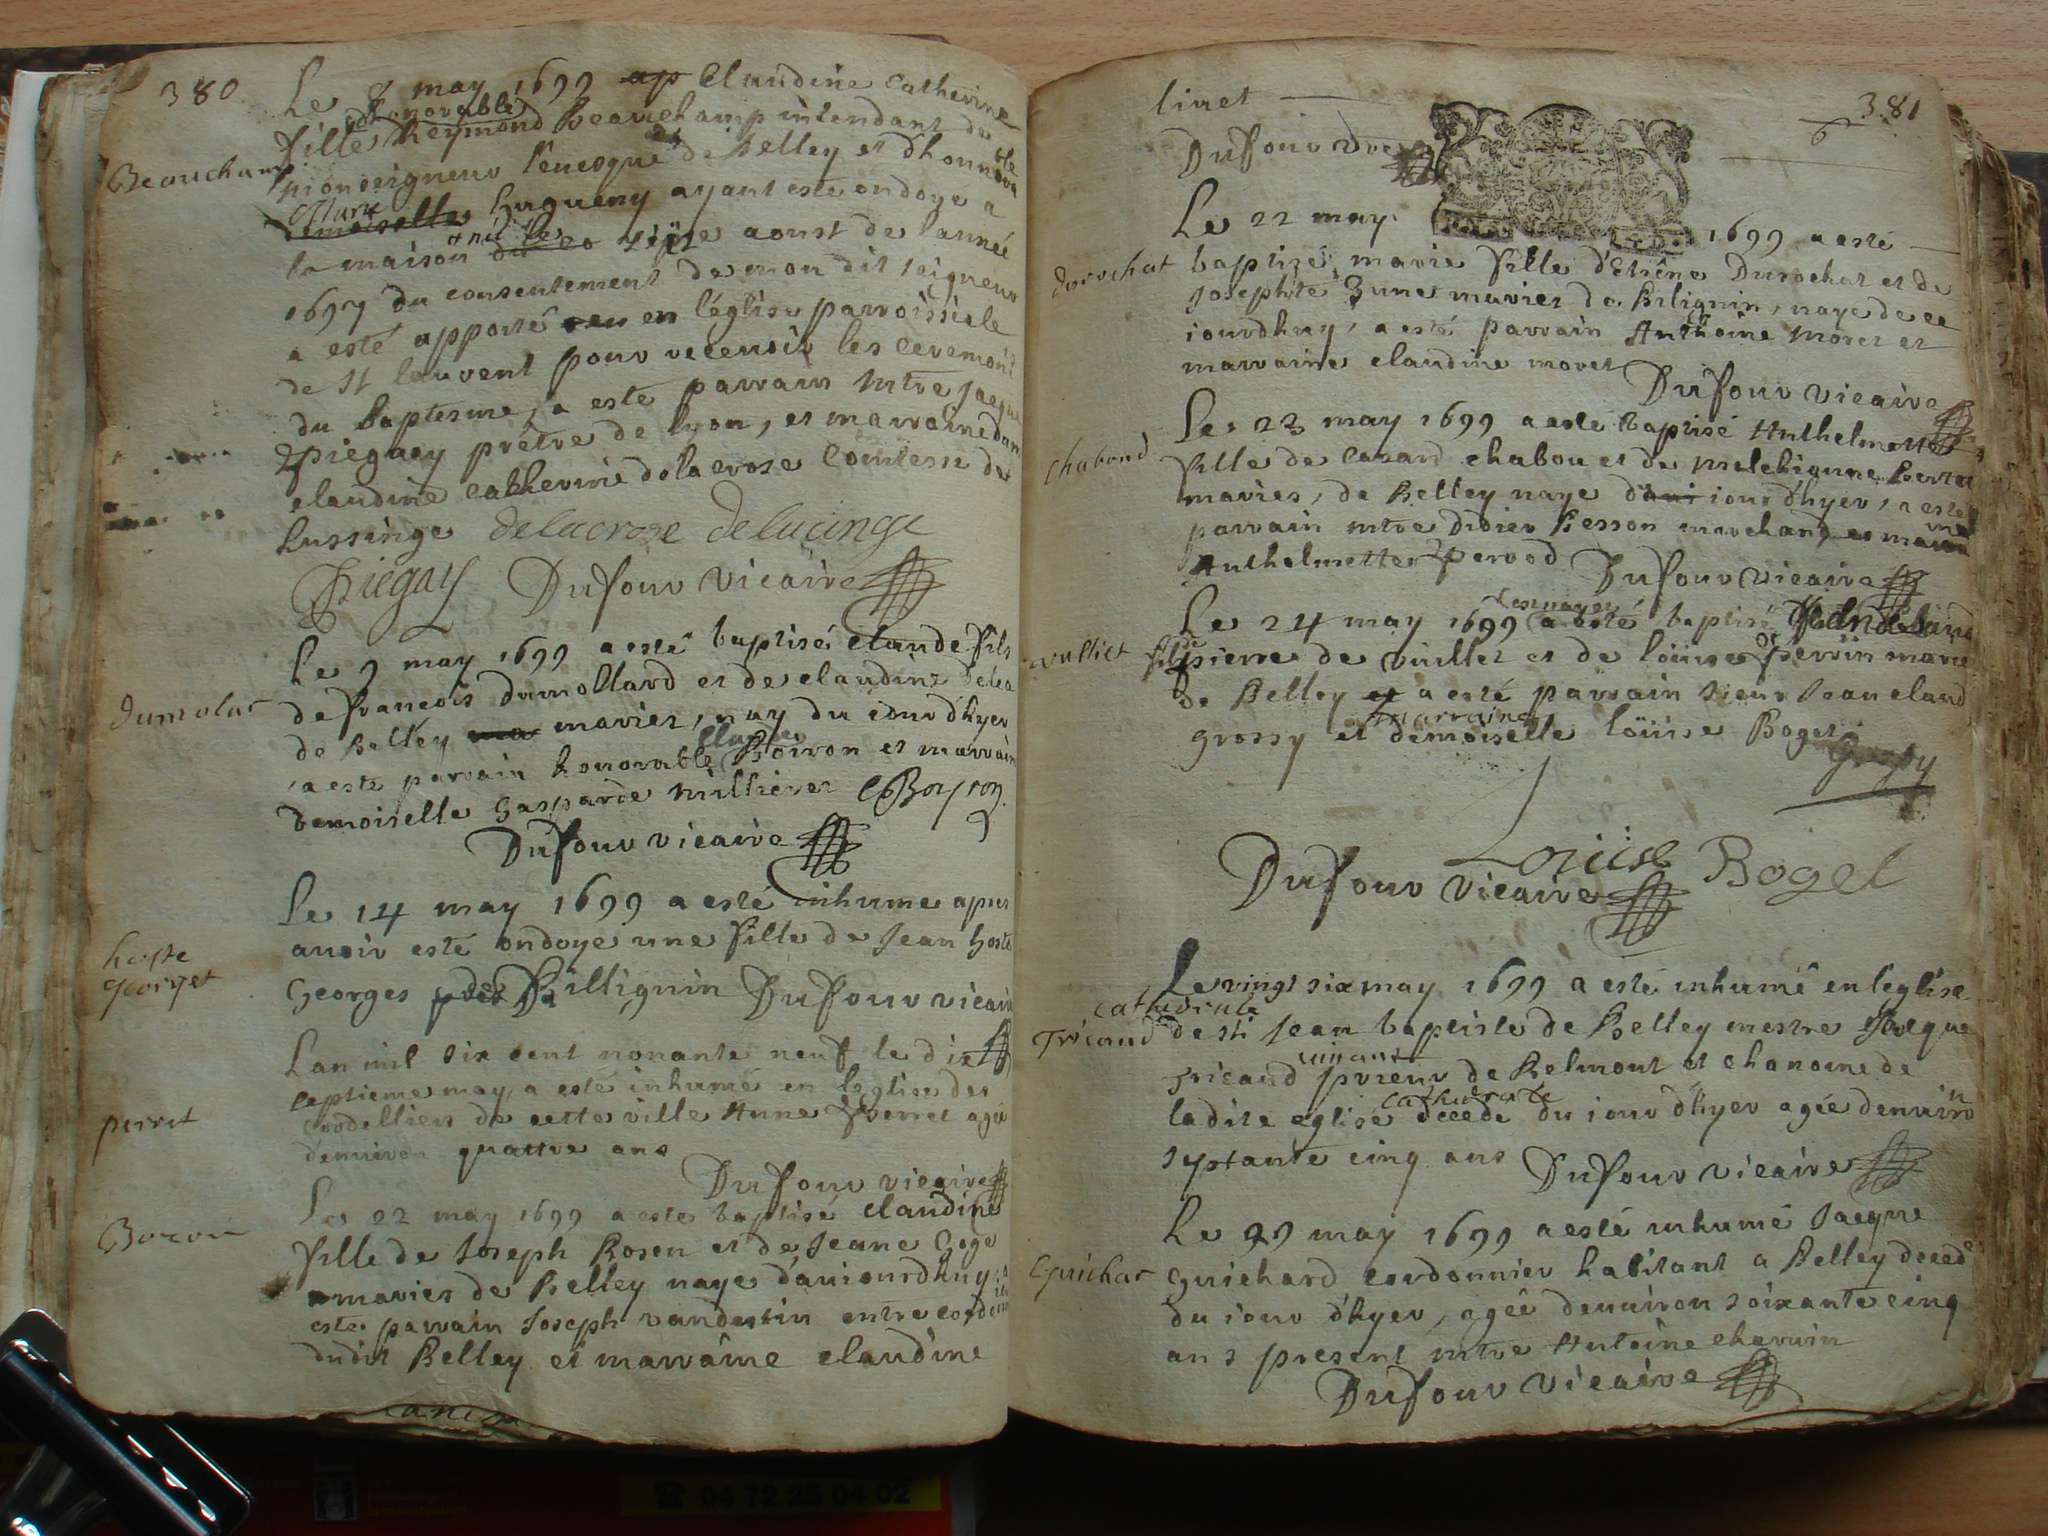 380
Le 8 may 1699 ap Claudine Catherine
d'honorable
fille Reymond Beauchamp intendant de
Beauchamp
monseigneur l'euesque de Belley et d'honnora ble
Marie
demoiselle hugueny ayant esté ondoyé a
la maison aoust de l'année
1697 du consentement de mon dit seigneur
a esté apporté en l'église parroissiele
de St laurent pour receuoir les ceremoni
du baptesme, a esté parrain mtre Jacque
piegaey prêtre de lyon, et marraine dam
claudine catherine de la crose Comtesse de
Lussinge delacroze delucinge
Piegay Dufour vicaire
Le 9 may 1699 a esté baptisé claude fils
Dumolar
de françois dumollard et de claudine
de Belley ma mariez, nay du iour d'hyer
claude
a esté parrain honorable Boiron et marrain
demoiselle Gasparde millieret CBoyron
Dufour vicaire
Le 14 may 1699 a esté inhume apres
auoir esté ondoyé une fille de Jean hoste
hoste
georget
Georges de Billignin Dufour vicaire
Lan mil six cent nonante neuf le dix
septieme may, a esté inhumé en leglise des
perret
cordelliers de cette ville Anne perret agé
d'enuiron quattre ans
Dufour vicaire
Le 22 may 1699 a esté baptisé claudine
Bozon
fille de Joseph Boson et de Jeane Goge
mariez de Belley naye d'auiourdhuy a
esté parrain Joseph vandestin entre
dudit Belley et marraine claudine
381
liuet
6
Dufour vre
Le 22 may 1699 a esté
durochat
baptizé marie fille d'Etiêne Durochat et de
Josephte mariez de Bilignin, naye de ce
iourdhuy, a esté parrain Anthoine moret et
marraine claudine moret
Dufour vicaire
Le 23 may 1699 a esté baptisé Anthelmette
chaboud
fille de Lazard chabou et de melchionne
mariez, de Belley naye d'aui iour d'hyer, a esté
parrain mtre Didier Besson marchand, et marrai ne
Anthelmette perood Dufour vicaire
Le 24 may 1699 a esté baptisé
vulliet
fils pierre de vuillet et de loüise perrin marie
de Belley et a esté parrain sieur Jean claud
marraine
grossy et demoiselle loüise Boget
Grossy
Louise Bogel
Dufour vicaire
Le vingt six may 1699 a esté inhumé en leglise
cathedrale
Tricaud
de St Jean baptiste de Belley mestre Jacque
viuant
Tricaud prieur de Belmont et chanoine de
cathedrale
ladite eglise decede du iour d'hyer agée denuiro n
septante cinq ans Dufour vicaire
Le 29 may 1699 a esté inhumé Jacque
Guichar
guichard cordonnier habitant a Belley deced é
du iour d'hyer, agée denuiron soixante cinq
ans present mtre Antoine cheruin
Dufour vicaire
☎ 04 72 25 04 02